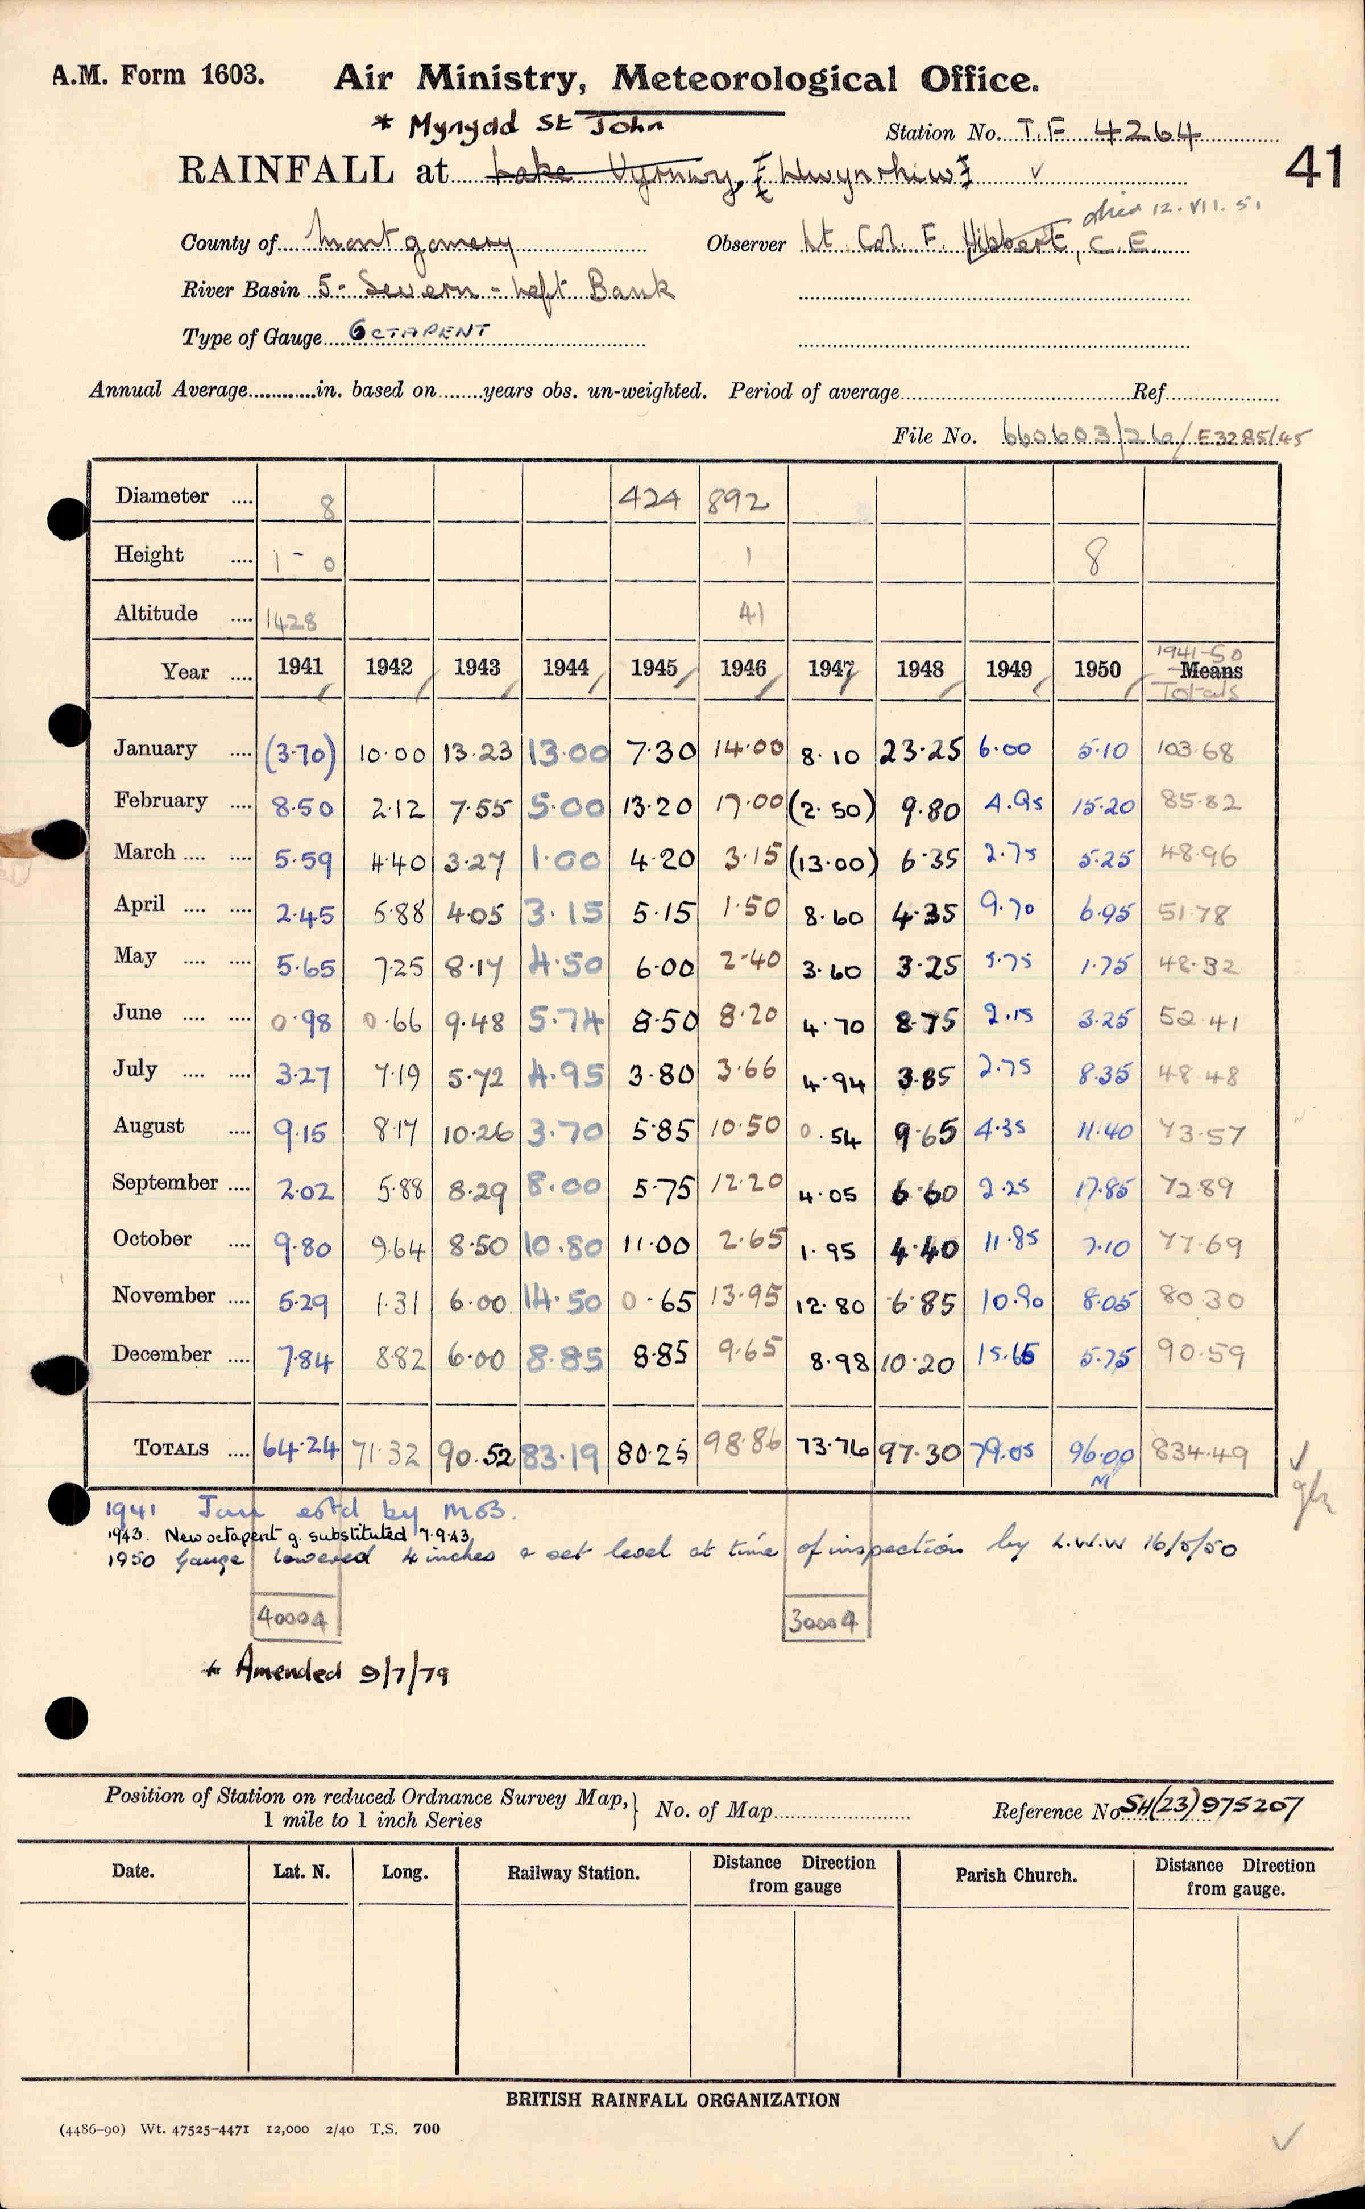 A.M. Form 1603. Air Ministry, Meteorological Office.
* Mynydd St John
Station No. T.F 4264
41
RAINFALL at Lake Vyrnwy, [Llwynrhiw] ✓
died 12.VII.51
County of Montgomery Observer Lt. Col. F. Hibbert, C.E
River Basin 5 - Severn - Left Bank
Type of Gauge OCTAPENT
Annual Average............in. based on........years obs. un-weighted. Period of average........Ref........
File No. 660603/26/E3285/45
Diameter .... 8 424 892
Height .... 1 - 0 1 8
Altitude .... 1428 41
1941-50
Year .... 1941 1942 1943 1944 1945 1946 1947 1948 1949 1950 Means
Totals
January .... (3.70) 10.00 13.23 13.00 7.30 14.00 8.10 23.25 6.00 5.10 103.68
February .... 8.50 2.12 7.55 5.00 13.20 17.00 (2.50) 9.80 4.95 15.20 85.82
March .... .... 5.59 4.40 3.27 1.00 4.20 3.15 (13.00) 6.35 2.75 5.25 48.96
April .... .... 2.45 5.88 4.05 3.15 5.15 1.50 8.60 4.35 9.70 6.95 51.78
May .... .... 5.65 7.25 8.17 4.50 6.00 2.40 3.60 3.25 5.75 1.75 48.32
June .... .... 0.98 0.66 9.48 5.74 8.50 8.20 4.70 8.75 2.15 3.25 52.41
July .... .... 3.27 7.19 5.72 4.95 3.80 3.66 4.94 3.85 2.75 8.35 48.48
August .... 9.15 8.17 10.26 3.70 5.85 10.50 0.54 9.65 4.35 11.40 73.57
September .... 2.02 5.88 8.29 8.00 5.75 12.20 4.05 6.60 2.25 17.85 72.89
October .... 9.80 9.64 8.50 10.80 11.00 2.65 1.95 4.40 11.85 7.10 77.69
November .... 5.29 1.31 6.00 14.50 0.65 13.95 12.80 6.85 10.90 8.05 80.30
December .... 7.84 8.82 6.00 8.85 8.85 9.65 8.98 10.20 15.65 5.75 90.59
TOTALS .... 64.24 71.32 90.52 83.19 80.25 98.86 73.76 97.30 79.05 96.00 834.49 ✓
M
1941 Jan estd by MOB.
1943. New octapent g. substituted 7.9.43.
1950 Gauge lowered 4 inches & set level at time of inspection by L.W.W 16/5/50
40004 30004
* Amended 9/7/79
Position of Station on reduced Ordnance Survey Map, 1 mile to 1 inch Series } No. of Map........ Reference No SH(23)975207
Date. Lat. N. Long. Railway Station. Distance Direction from gauge Parish Church. Distance Direction from gauge.
BRITISH RAINFALL ORGANIZATION
(4486-90) Wt. 47525-4471 12,000 2/40 T.S. 700
✓